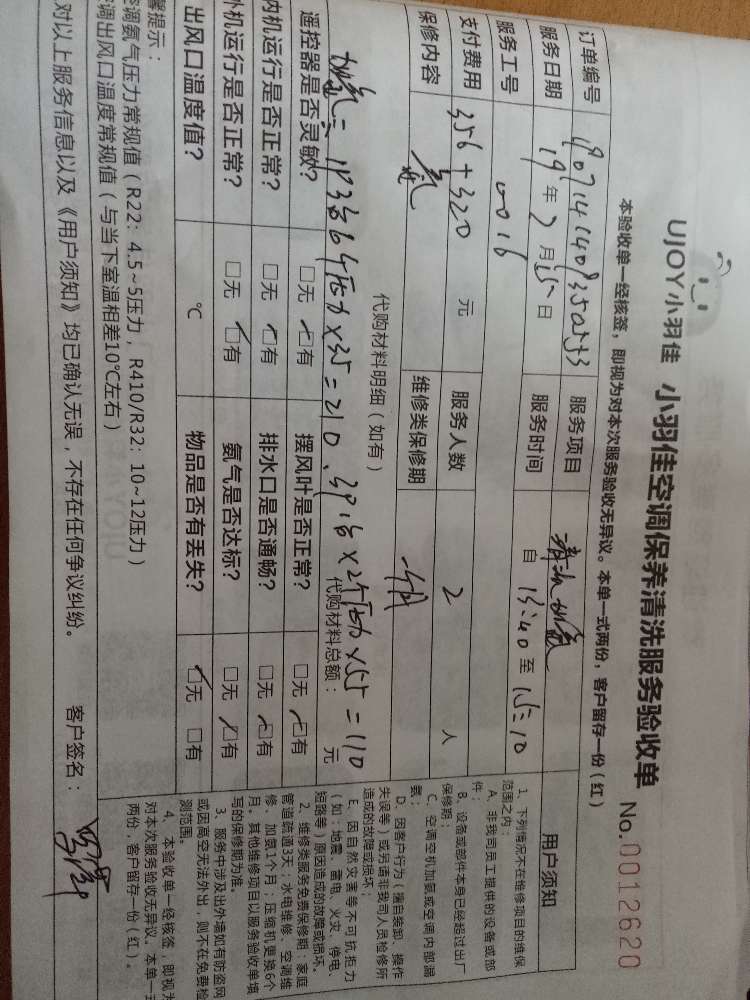 UJOY小羽佳 小羽佳空调保养清洗服务验收单 No.0012620
本验收单一经核签，即视为对本次服务验收无异议。本单一式两份，客户留存一份（红）
订单编号 服务项目 清洗加氟
服务日期 19年7月15日 服务时间 自 13:40 至 15:10
服务工号 0016
支付费用 356+320 元 服务人数 2 人
保修内容 氟 维修类保修期 一个月
代购材料明细（如有）
代购材料总额： 元
遥控器是否灵敏？ □无 □有 摆风叶是否正常？ □无 □有
内机运行是否正常？ □无 □有 排水口是否通畅？ □无 □有
外机运行是否正常？ □无 □有 氨气是否达标？ □无 □有
出风口温度值？ ℃ 物品是否有丢失？ □无 □有
提示：
调氨气压力常规值（R22：4.5~5压力，R410/R32：10~12压力）
调出风口温度常规值（与当下室温相差10℃左右）
对以上服务信息以及《用户须知》均已确认无误，不存在任何争议纠纷。 客户签名：
用户须知
1、下列情况不在维修项目的维保
范围之内：
A、非我司员工提供的设备或部
件；
B、设备或部件本身已经超过出厂
保修期；
C、空调空机加氨或空调内部漏
氨；
D、因客户行为（擅自装卸、操作
失误等）或另请非我司人员检修所
造成的故障或损坏；
E、因自然灾害等不可抗拒力
（如：地震、雷电、火灾、停电、
短路等）原因造成的故障或损坏。
2、维修类服务免费保修期：家庭
管道疏通3天；水电维修、空调维
修、加氨1个月；压缩机更换6个
月。其他维修项目以服务验收单填
写的保修期为准。
3、服务中涉及出外墙如有防盗网
或因高空无法外出，则不在免费检
测范围。
4、本验收单一经核签，即视为
对本次服务验收无异议。本单一式
两份，客户留存一份（红）。